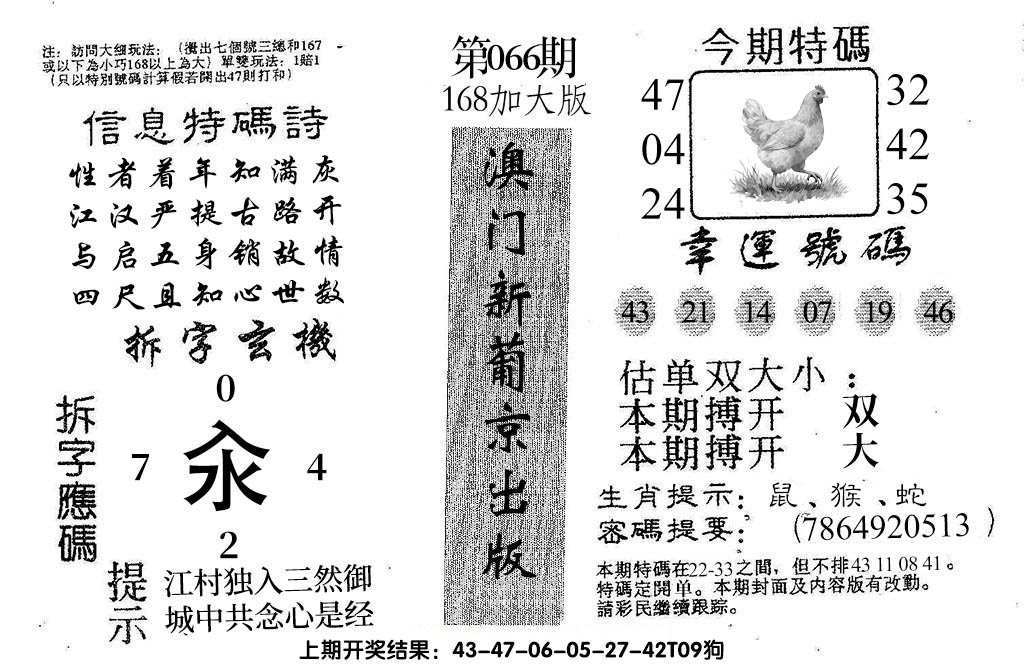 注：訪問大细玩法：（攪出七個號三總和167
或以下為小巧168以上為大）單雙玩法：1賠1
（只以特別號碼計算假若開出47則打和）
信息特碼詩
性者着年知满灰
江汉严提古路开
与启五身销故情
四尺且知心世数
拆字玄機
拆字應碼
0
7 氽 4
2
提示
江村独入三然御
城中共念心是经
第066期
168加大版
澳门新葡京出版
今期特碼
47 32
04 42
24 35
幸運號碼
43 21 14 07 19 46
估单双大小：
本期搏开 双
本期搏开 大
生肖提示：鼠、猴、蛇
密碼提要：（7864920513）
本期特碼在22-33之間，但不排43 11 08 41。
特碼定開单。本期封面及内容版有改動。
請彩民繼續跟踪。
上期开奖结果：43-47-06-05-27-42T09狗